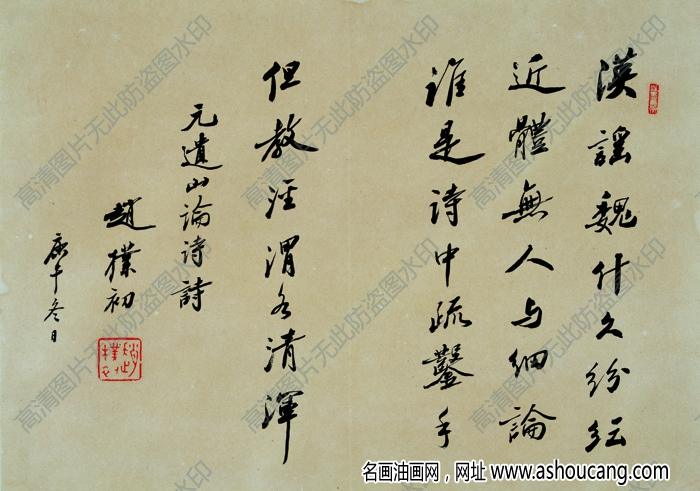 漢謠魏什久紛紜
近體無人与細論
誰是诗中疏鑿手
但教涇渭各清渾
元遺山論诗詩
趙樸初
庚午冬日
高清图片无此防盗图水印
名画油画网，网址 www.ashoucang.com